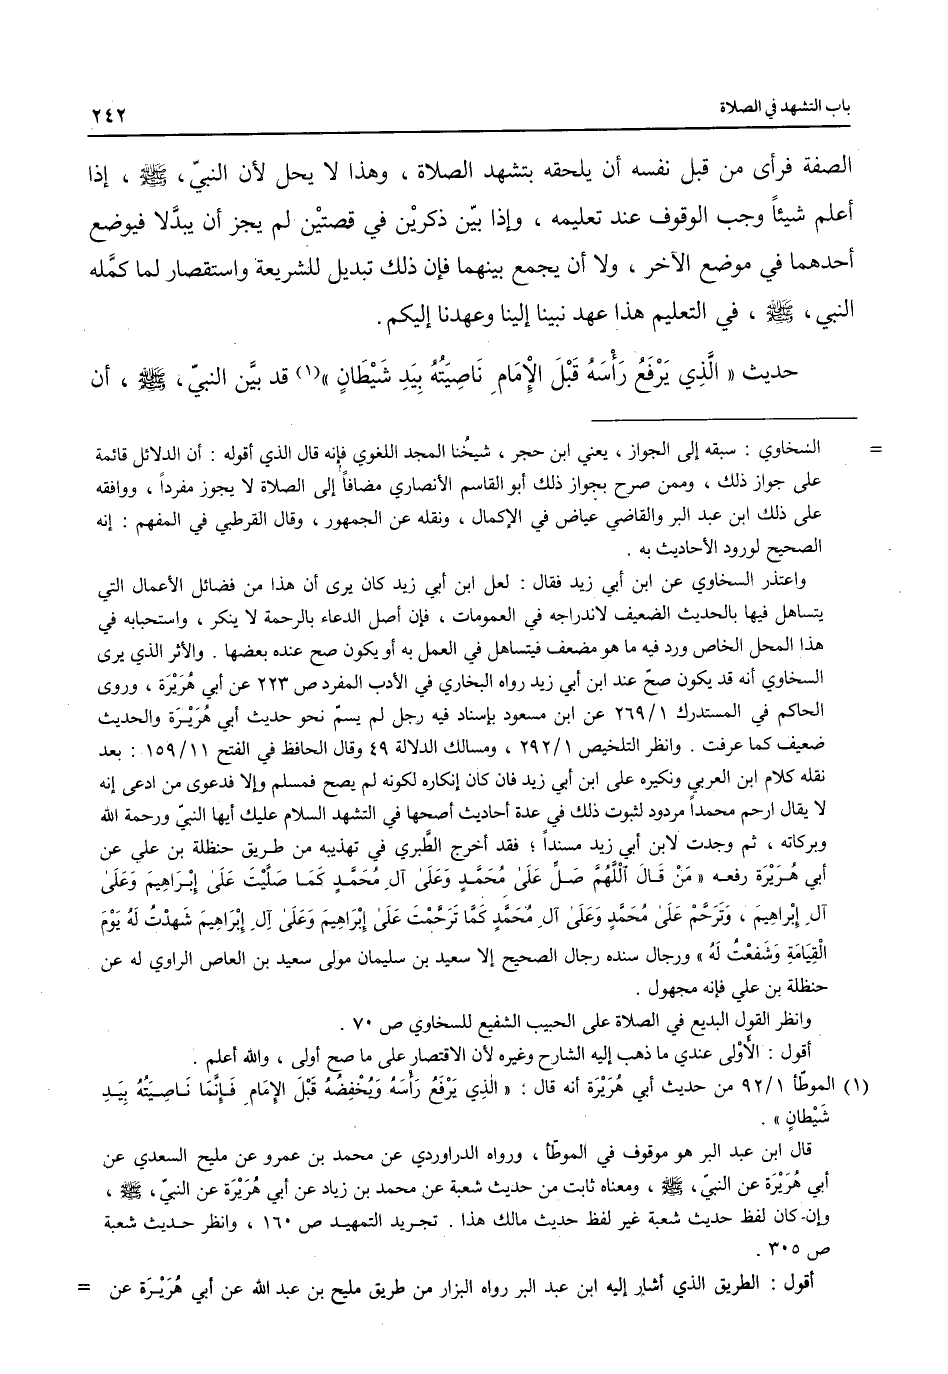 باب التشهد في الصلاة ٢٤٢
الصفة فرأى من قبل نفسه أن يلحقه بتشهد الصلاة ، وهذا لا يحل لأن النبيّ ، ﷺ ، إذا
أعلم شيئاً وجب الوقوف عند تعليمه ، وإذا بيّن ذكريْن في قصتيْن لم يجز أن يبدَّلا فيوضع
أحدهما في موضع الآخر ، ولا أن يجمع بينهما فإن ذلك تبديل للشريعة واستقصار لما كمَّله
النبي ، ﷺ ، في التعليم هذا عهد نبينا إلينا وعهدنا إليكم .
حديث « الَّذِي يَرْفَعُ رَأْسَهُ قَبْلَ الإِمَامِ نَاصِيَتُهُ بِيَدِ شَيْطَانٍ »(١) قد بيَّن النبيّ ، ﷺ ، أن
= السّخاوي : سبقه إلى الجواز ، يعني ابن حجر ، شيخُنا المجد اللغوي فإنه قال الذي أقوله : أن الدلائل قائمة
على جواز ذلك ، وممن صرح بجواز ذلك أبو القاسم الأنصاري مضافاً إلى الصلاة لا يجوز مفرداً ، ووافقه
على ذلك ابن عبد البر والقاضي عياض في الإكمال ، ونقله عن الجمهور ، وقال القرطبي في المفهم : إنه
الصحيح لورود الأحاديث به .
واعتذر السخاوي عن ابن أبي زيد فقال : لعل ابن أبي زيد كان يرى أن هذا من فضائل الأعمال التي
يتساهل فيها بالحديث الضعيف لاندراجه في العمومات ، فإن أصل الدعاء بالرحمة لا ينكر ، واستحبابه في
هذا المحل الخاص ورد فيه ما هو مضعف فيتساهل في العمل به أو يكون صح عنده بعضها . والأثر الذي يرى
السخاوي أنه قد يكون صحّ عند ابن أبي زيد رواه البخاري في الأدب المفرد ص ٢٢٣ عن أبي هُرَيْرَة ، وروى
الحاكم في المستدرك ٢٦٩/١ عن ابن مسعود بإسناد فيه رجل لم يسمّ نحو حديث أبي هُرَيْرَة والحديث
ضعيف كما عرفت . وانظر التلخيص ٢٩٢/١ ، ومسالك الدلالة ٤٩ وقال الحافظ في الفتح ١٥٩/١١ : بعد
نقله كلام ابن العربي ونكيره على ابن أبي زيد فان كان إنكاره لكونه لم يصح فمسلم وإلا فدعوى من ادعى إنه
لا يقال ارحم محمداً مردود لثبوت ذلك في عدة أحاديث أصحها في التشهد السلام عليك أيها النبيّ ورحمة الله
وبركاته ، ثم وجدت لابن أبي زيد مسنداً ؛ فقد أخرج الطَّبري في تهذيبه من طريق حنظلة بن علي عن
أبي هُرَيْرَة رفعه « مَنْ قَالَ اَللَّهُمَّ صَلِّ عَلَىٰ مُحَمَّدٍ وَعَلَىٰ آلِ مُحَمَّدٍ كَمَا صَلَّيْتَ عَلَىٰ إِبْرَاهِيمَ وَعَلَىٰ
آلِ إِبْراهِيمَ ، وَتَرَحَّمْ عَلَىٰ مُحَمَّدٍ وَعَلَىٰ آلِ مُحَمَّدٍ كَمَّا تَرَحَّمْتَ عَلَىٰ إِبْرَاهِيمَ وَعَلَىٰ آلِ إِبْرَاهِيمَ شَهِدْتُ لَهُ يَوْمَ
الْقِيَامَةِ وَشَفَعْتُ لَهُ » ورجال سنده رجال الصحيح إلا سعيد بن سليمان مولى سعيد بن العاص الراوي له عن
حنظلة بن علي فإنه مجهول .
وانظر القول البديع في الصلاة على الحبيب الشفيع للسخاوي ص ٧٠ .
أقول : الأَوْلى عندي ما ذهب إليه الشارح وغيره لأن الاقتصار على ما صح أولى ، والله أعلم .
(١) الموطّأ ٩٢/١ من حديث أبي هُرَيْرَة أنه قال : « الَّذِي يَرْفَعُ رَأْسَهُ وَيُخْفِضُهُ قَبْلَ الإِمَامِ فَإِنَّمَا نَاصِيَتُهُ بِيَدِ
شَيْطانٍ » .
قال ابن عبد البر هو موقوف في الموطّأ ، ورواه الدراوردي عن محمد بن عمرو عن مليح السعدي عن
أبي هُرَيْرَة عن النبيّ ، ﷺ ، ومعناه ثابت من حديث شعبة عن محمد بن زياد عن أبي هُرَيْرَة عن النبيّ ، ﷺ ،
وإن كان لفظ حديث شعبة غير لفظ حديث مالك هذا . تجريد التمهيد ص ١٦٠ ، وانظر حديث شعبة
ص ٣٠٥ .
أقول : الطريق الذي أشار إليه ابن عبد البر رواه البزار من طريق مليح بن عبد الله عن أبي هُرَيْرَة عن =